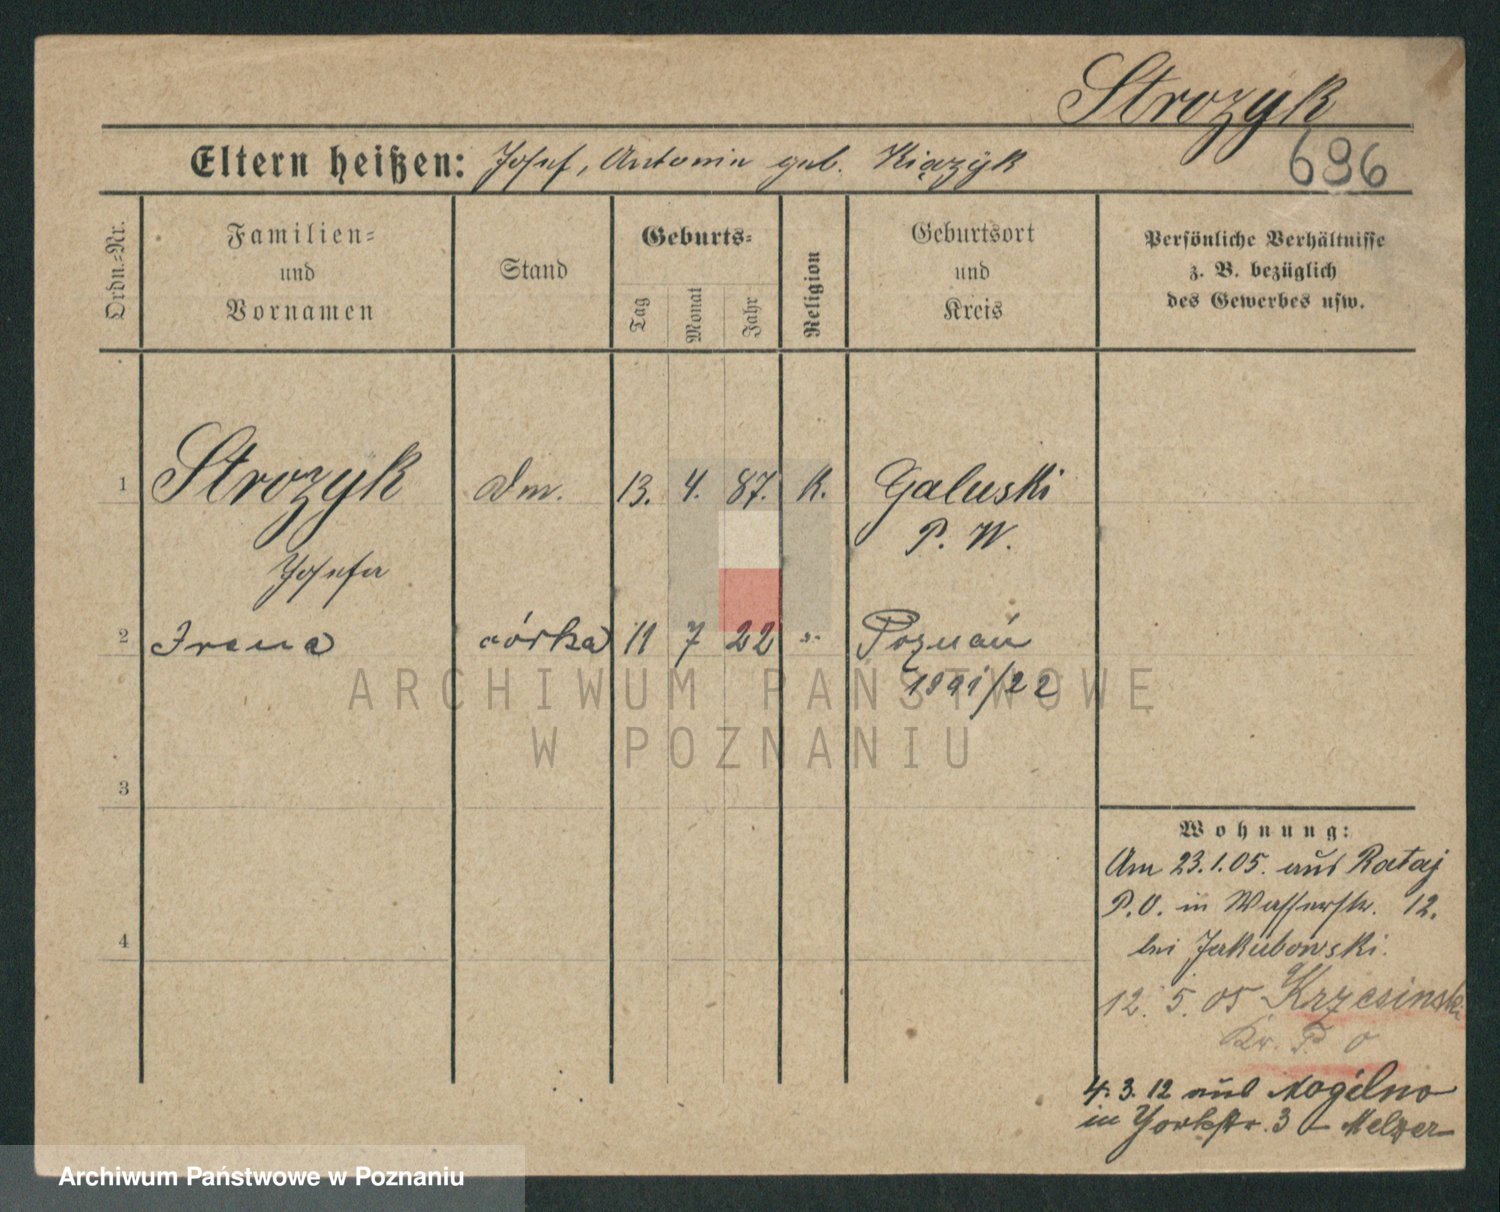 Strozyk
Eltern heißen: Josef, Antonin geb. Kiązÿk
696
Ordn.-Nr.
Familien-
und
Vornamen
Stand
Geburts-
Tag
Monat
Jahr
Religion
Geburtsort
und
Kreis
Persönliche Verhältnisse
z. B. bezüglich
des Gewerbes usw.
1 Strozyk Dm. 13. 4. 87. K. Galuski
P. W.
Josefa
2 Irena córka 11 7 22 Poznań
1891/22
3
4
Wohnung:
Am 23.1.05. aus Rataj
P.O. in Wasserstr. 12.
bei Jakubowski.
12. 5. 05 Krzesinski
Kr. P. O
4. 3. 12 aus Mogilno
in Yorkstr. 3 – Melzer
ARCHIWUM PAŃSTWOWE
W POZNANIU
Archiwum Państwowe w Poznaniu